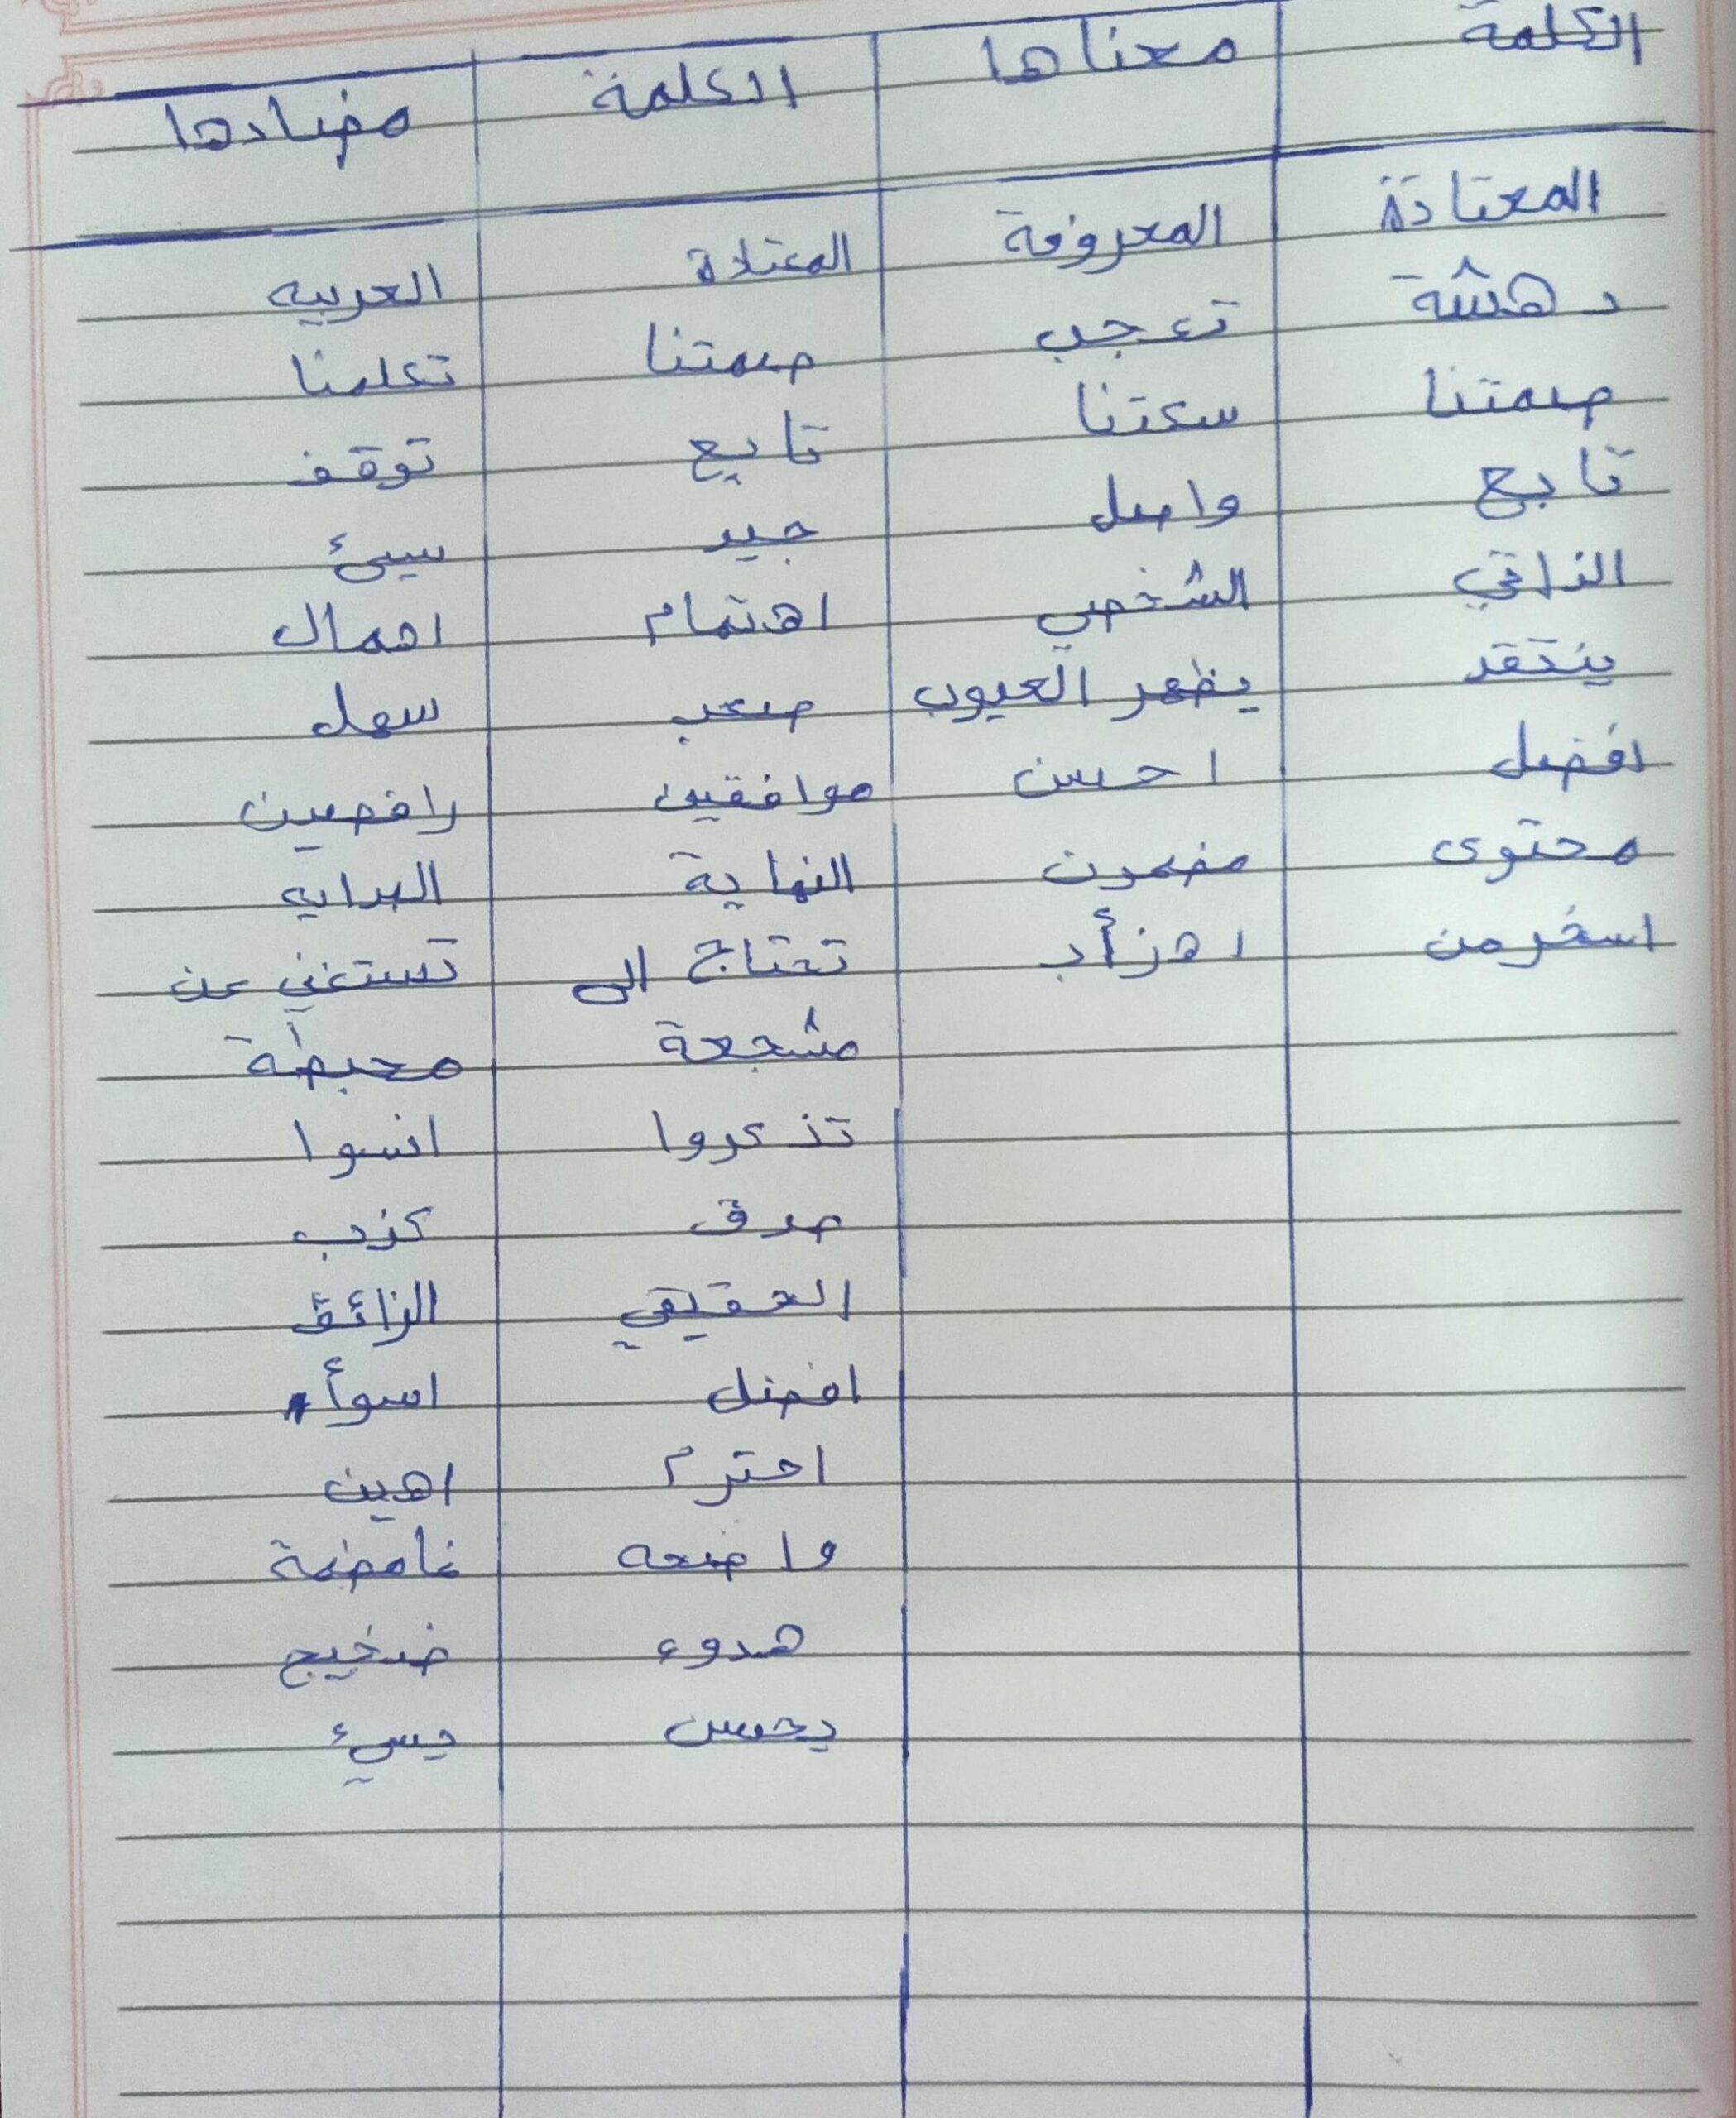 الكلمة معناها الكلمة مضادها
المعتادة المعروفة المعتادة الغريبه
دهشة تعجب صمتنا تكلمنا
صمتنا سكتنا تابع توقف
تابع واصل جيد سيئ
الذاتي الشخصي اهتمام اهمال
ينتقد يظهر العيوب صعب سهل
افضل احسن موافقين رافضين
محتوى مضمون النهاية البدايه
اسخر من اهزأ ب تحتاج الى تستغني عن
مشجعة محبطة
تذكروا انسوا
صدق كذب
الحقيقي الزائف
افضل اسوأ
احترم اهين
واضحه غامضة
هدوء ضجيج
يحسن يسيء